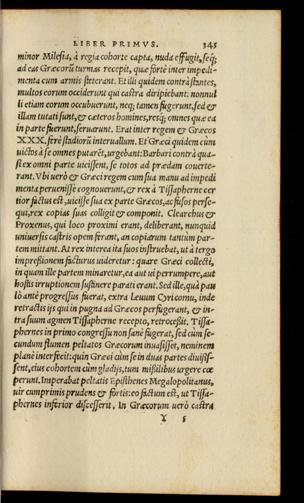 LIBER PRIMVS. 345
minor Milesia, à regia cohorte capta, nuda effugit, seq;
ad eas Græcorũ turmas recepit, quæ fortè inter impedi-
menta cum armis steterant. Et illi quidem contrà stantes,
multos eorum occiderunt qui castra diripiebant: nonnul
li etiam eorum occubuerunt, neq; tamen fugerunt, sed &
illam tutati sunt, & cæteros homines, resq; omnes quæ ea
in parte fuerunt, seruarunt. Erat inter regem & Græcos
XXX. ferè stadiorũ interuallum. Et Græci quidem cùm
uictos à se omnes putarẽt, urgebant: Barbari contrà qua-
si ex omni parte uicissent, se totos ad prædam conuerte-
rant. Vbi uerò & Græci regem cum sua manu ad impedi
menta peruenisse cognouerunt, & rex à Tissapherne cer
tior factus est, uicisse sua ex parte Græcos, ac fusos perse-
qui, rex copias suas colligit & componit. Clearchus &
Proxenus, qui loco proximi erant, deliberant, nunquid
uniuersis castris opem ferant, an copiarum tantùm par-
tem mittant. At rex interea ita suos instruebat, ut à tergo
impressionem facturus uideretur: quare Græci collecti,
in quam ille partem minaretur, ea aut ui perrumpere, aut
hostis irruptionem sustinere parati erant. Sed ille, quà pau
lò antè progressus fuerat, extra Leuum Cyri cornu, inde
retractis ijs qui in pugna ad Græcos perfugerant, & in-
tra suum agmen Tissapherne recepto, retrocessit. Tissa-
phernes in primo congressu non sanè fugerat, sed cùm se-
cundum flumen peltatos Græcorum inuasisset, neminem
planè interfecit: quin Græci cùm se in duas partes diuisis-
sent, eius cohortem cùm gladijs, tum missilibus urgere cœ
perunt. Imperabat peltatis Episthenes Megalopolitanus,
uir cumprimis prudens & fortis: eo factum est, ut Tissa-
phernes inferior discesserit. In Græcorum uerò castra
Y 5